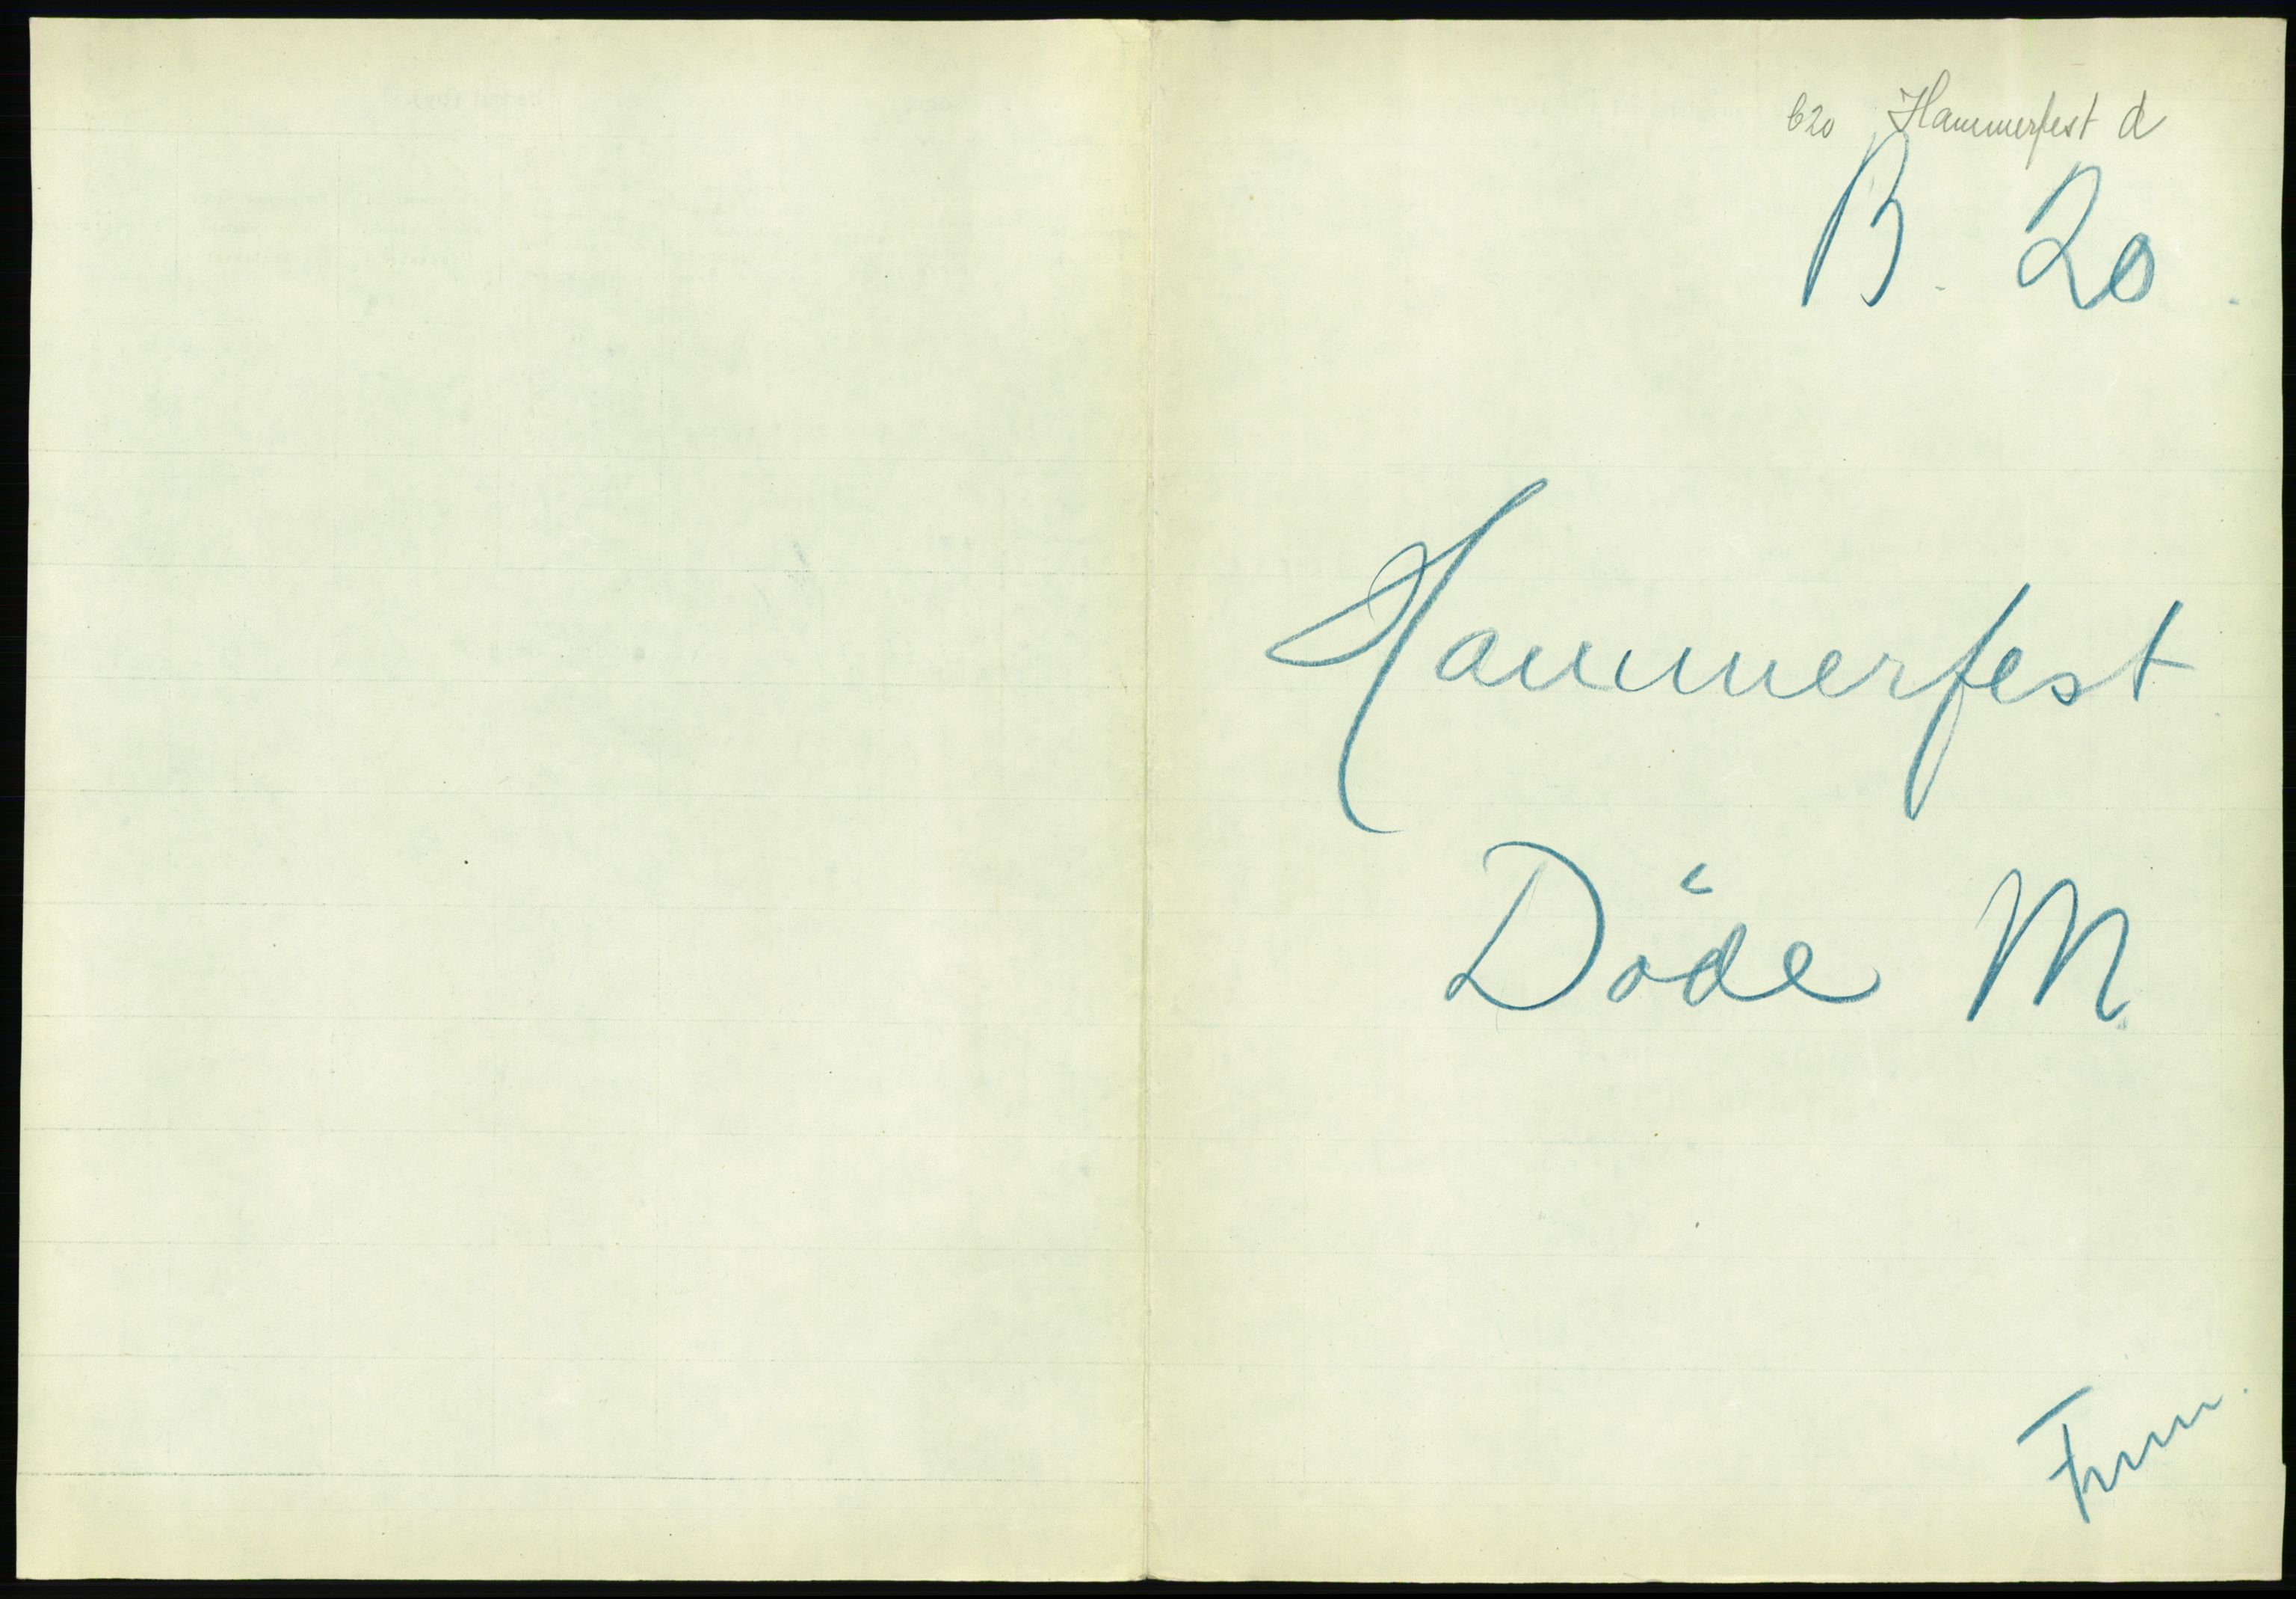 b20 Hammerfest d
B. 20.
Hammerfest
Döde M
Finm.